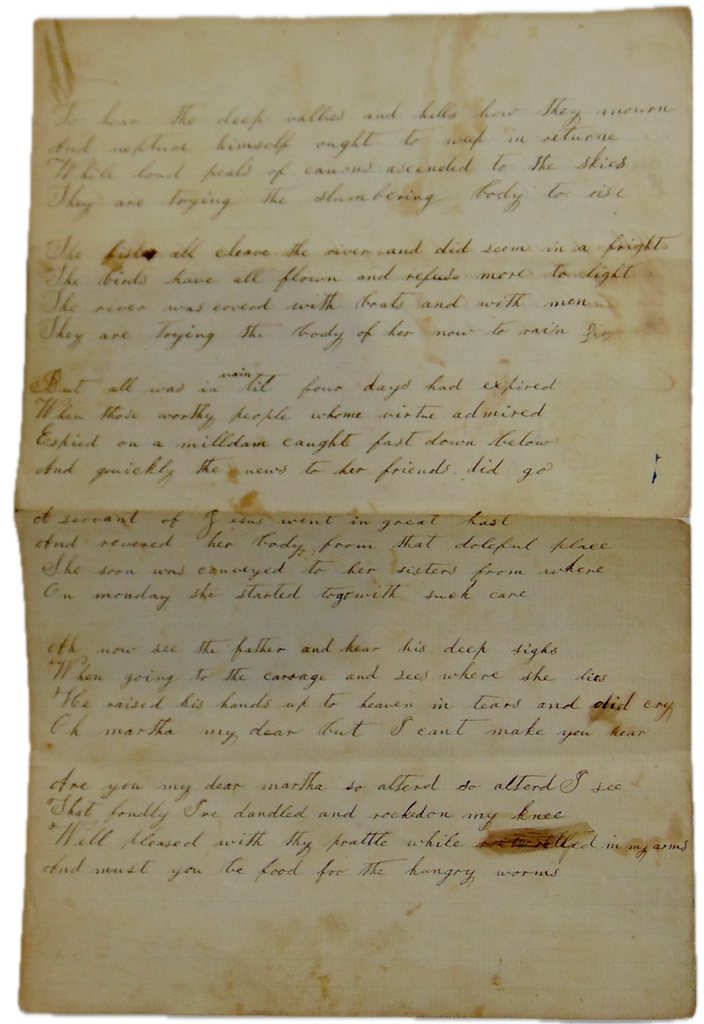 To hear the deep vallies and hills how they mourn
And nepture himself ought to weep in returne
While loud peals of canons ascended to the skies
They are trying the slumbering body to rise
The fish all cleave the river and did seem in a fright
The birds have all flown and refuse more to light
The river was coverd with boats and with men
They are trying the body of her now to rain
But all was in vain til four days had expired
When those worthy people whome virtue admired
Espied on a milldam caught fast down below
And quickly the news to her friends did go
A servant of Jesus went in great hast
And revered her body from that doleful place
She soon was conveyed to her sisters from where
On monday she started to go with such care
Ah now see the father and hear his deep sighs
When going to the carrage and sees where she lies
He raised his hands up to heaven in tears and did cry
Oh martha my dear but I cant make you hear
Are you my dear martha so alterd so alterd I see
That fondly Ive dandled and rocked on my knee
Well pleased with thy prattle while in my arms
And must you be food for the hungry worms